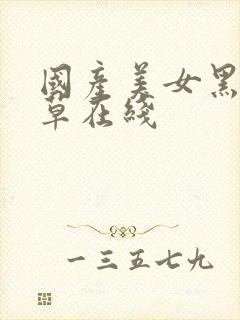 國產美女黑
草在綫
一三五七九